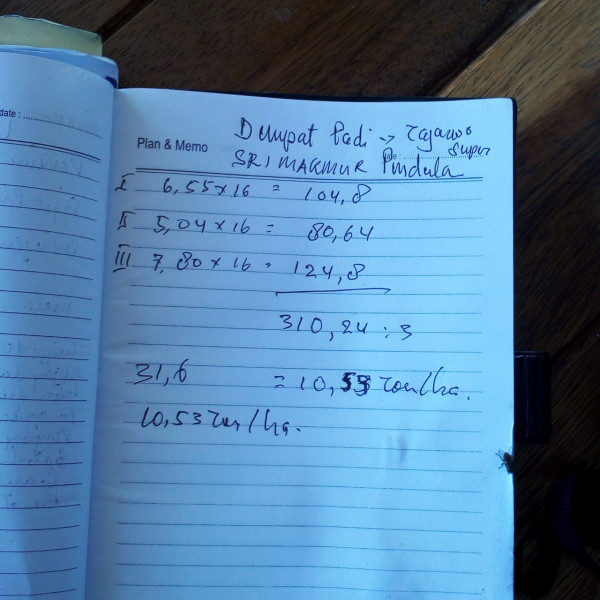 date :
Plan & Memo
Dempat Padi → Tajarwo
Super
SRI MAKMUR Pindula
I 6,55 x 16 = 104,8
II 5,04 x 16 = 80,64
III 7,80 x 16 = 124,8
310,24 : 3
31,6 = 10,53 ton/ha.
10,53 ton/ha.